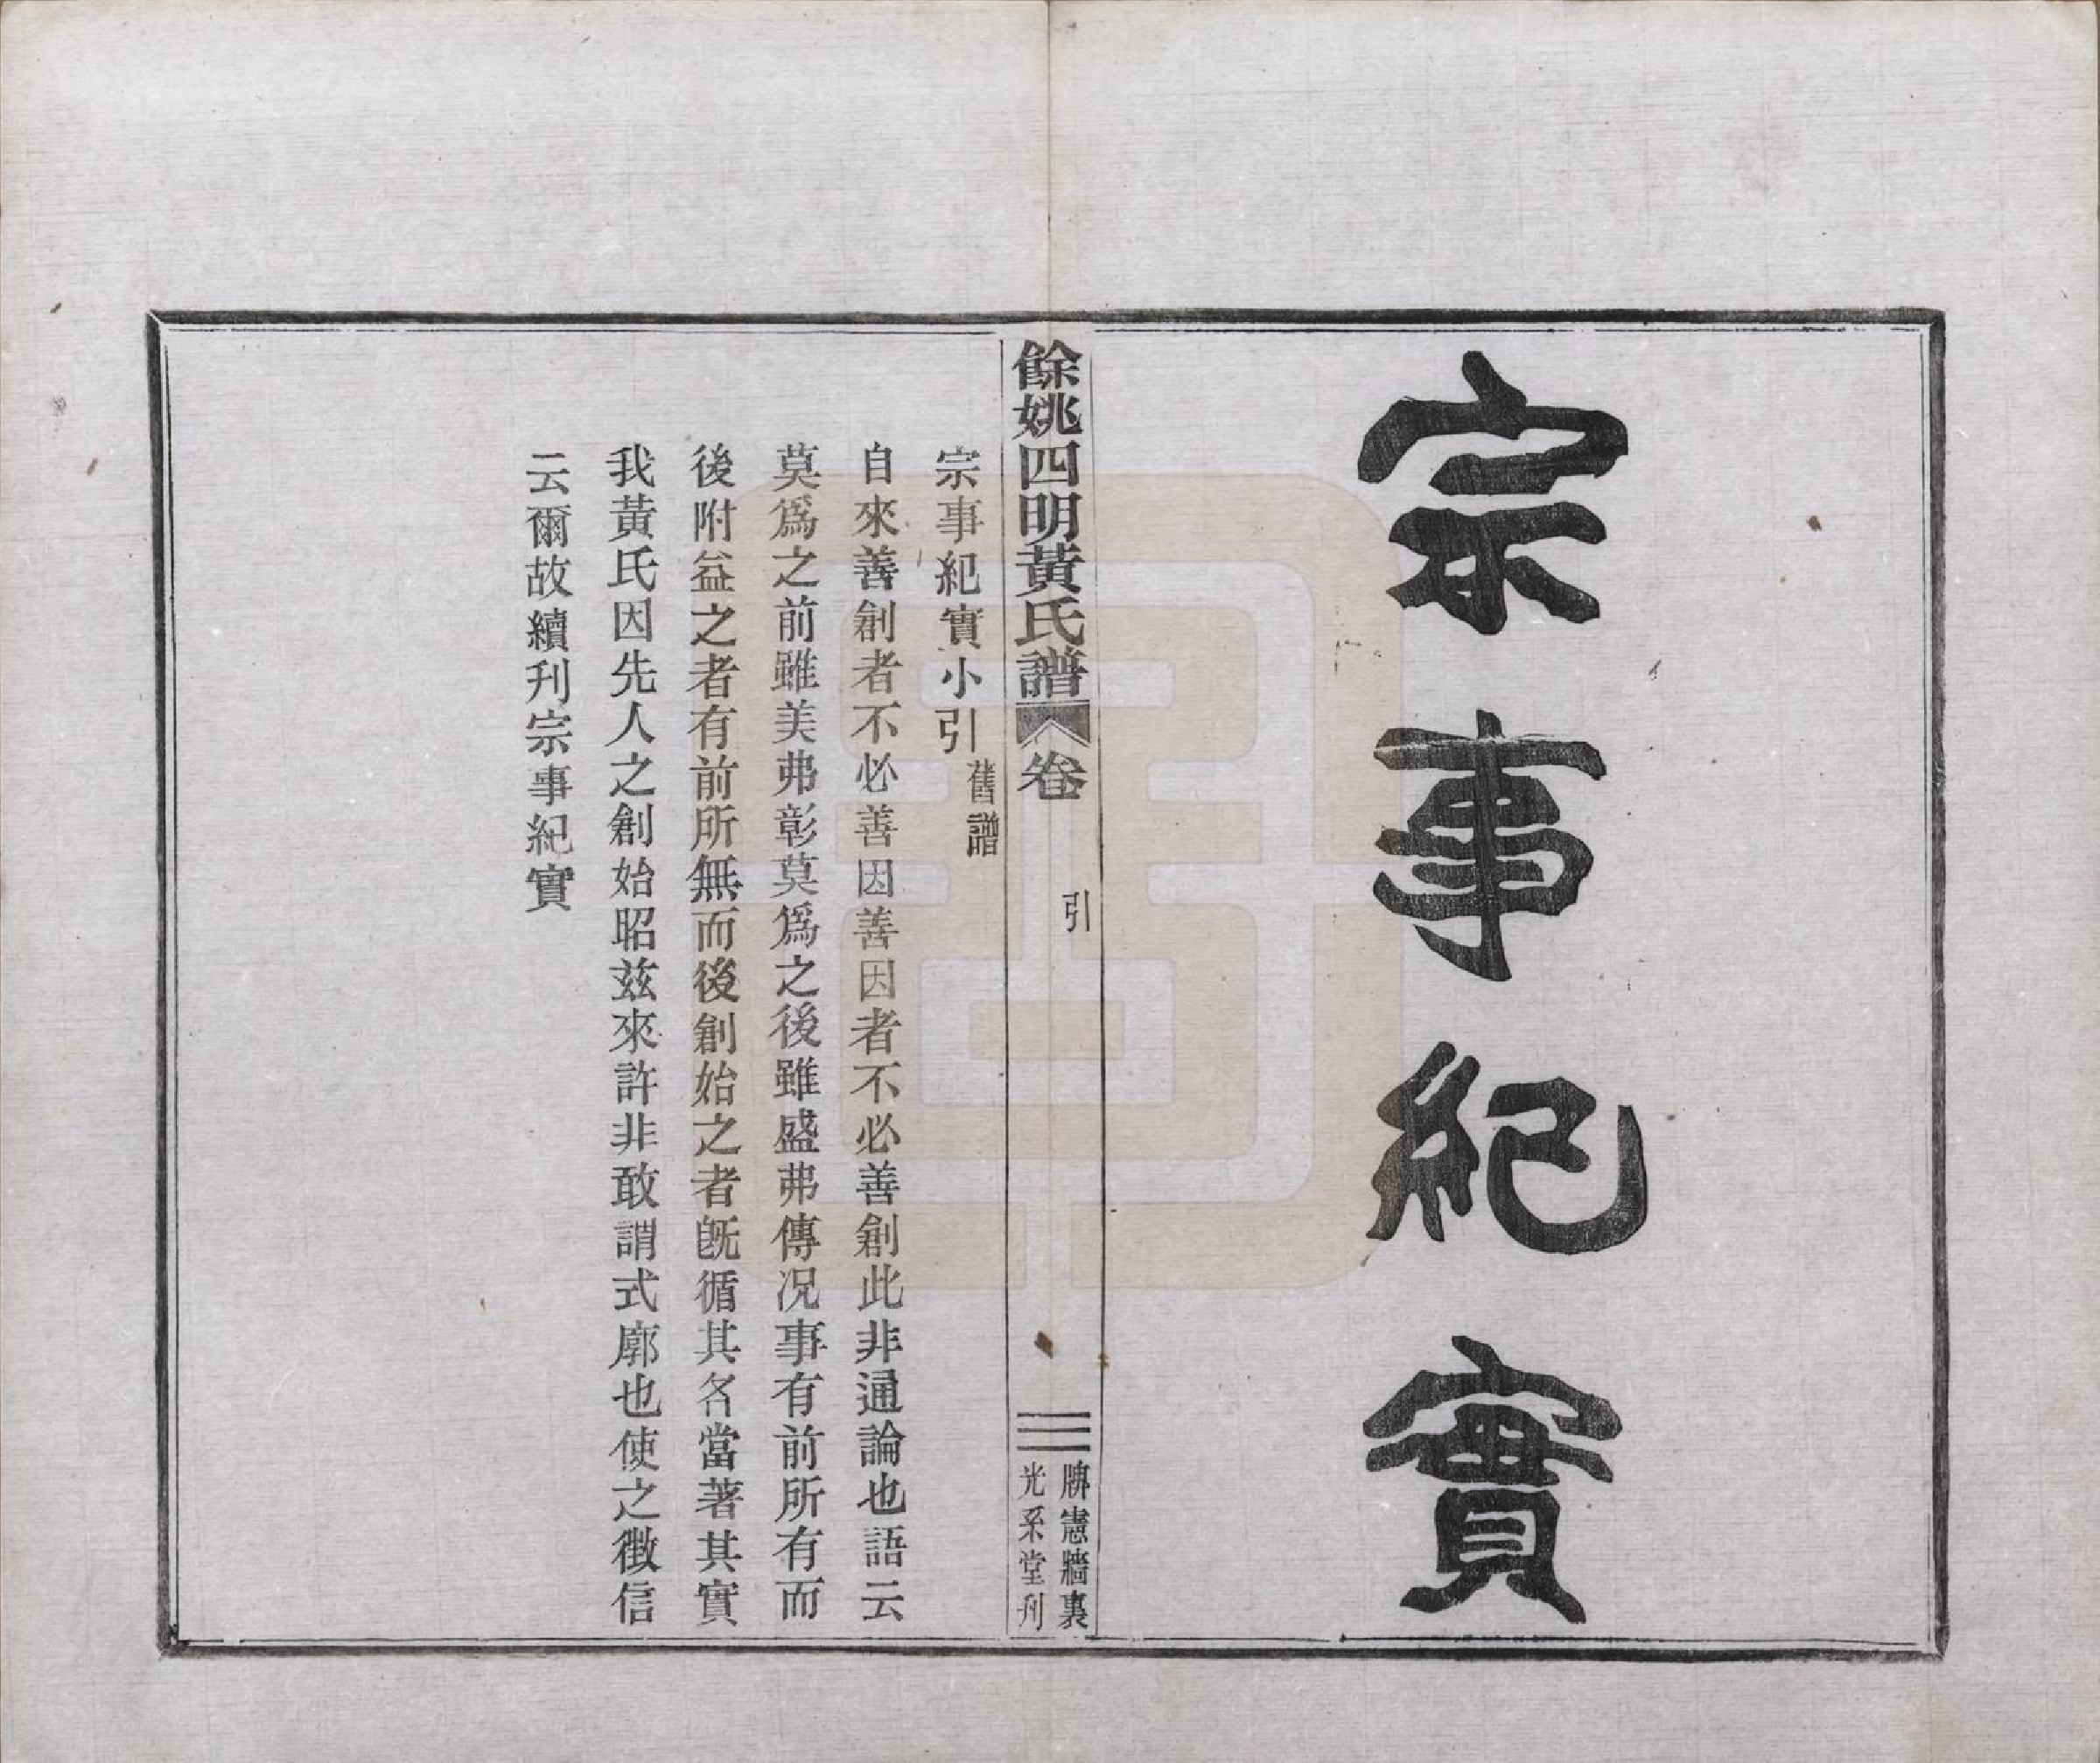 宗事紀實
餘姚四明黃氏譜 卷
引
牌憲牆裏
光系堂刋
宗事紀實小引 舊譜
自來善創者不必善因善因者不必善創此非通論也語云
莫爲之前雖美弗彰莫爲之後雖盛弗傳况事有前所有而
後附益之者有前所無而後創始之者旣循其名當著其實
我黃氏因先人之創始昭兹來許非敢謂式廓也使之徵信
云爾故續刋宗事紀實